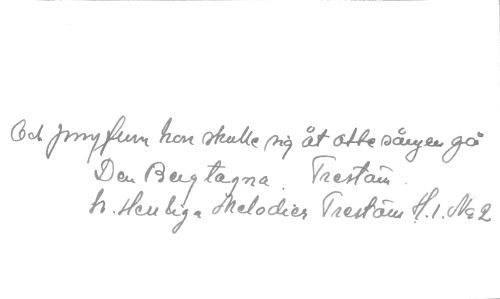 Och jungfrun hon skulle sig åt ottesången gå
Den Bergtagna. Trestäm.
Melodier Trestäm H.1. No 2